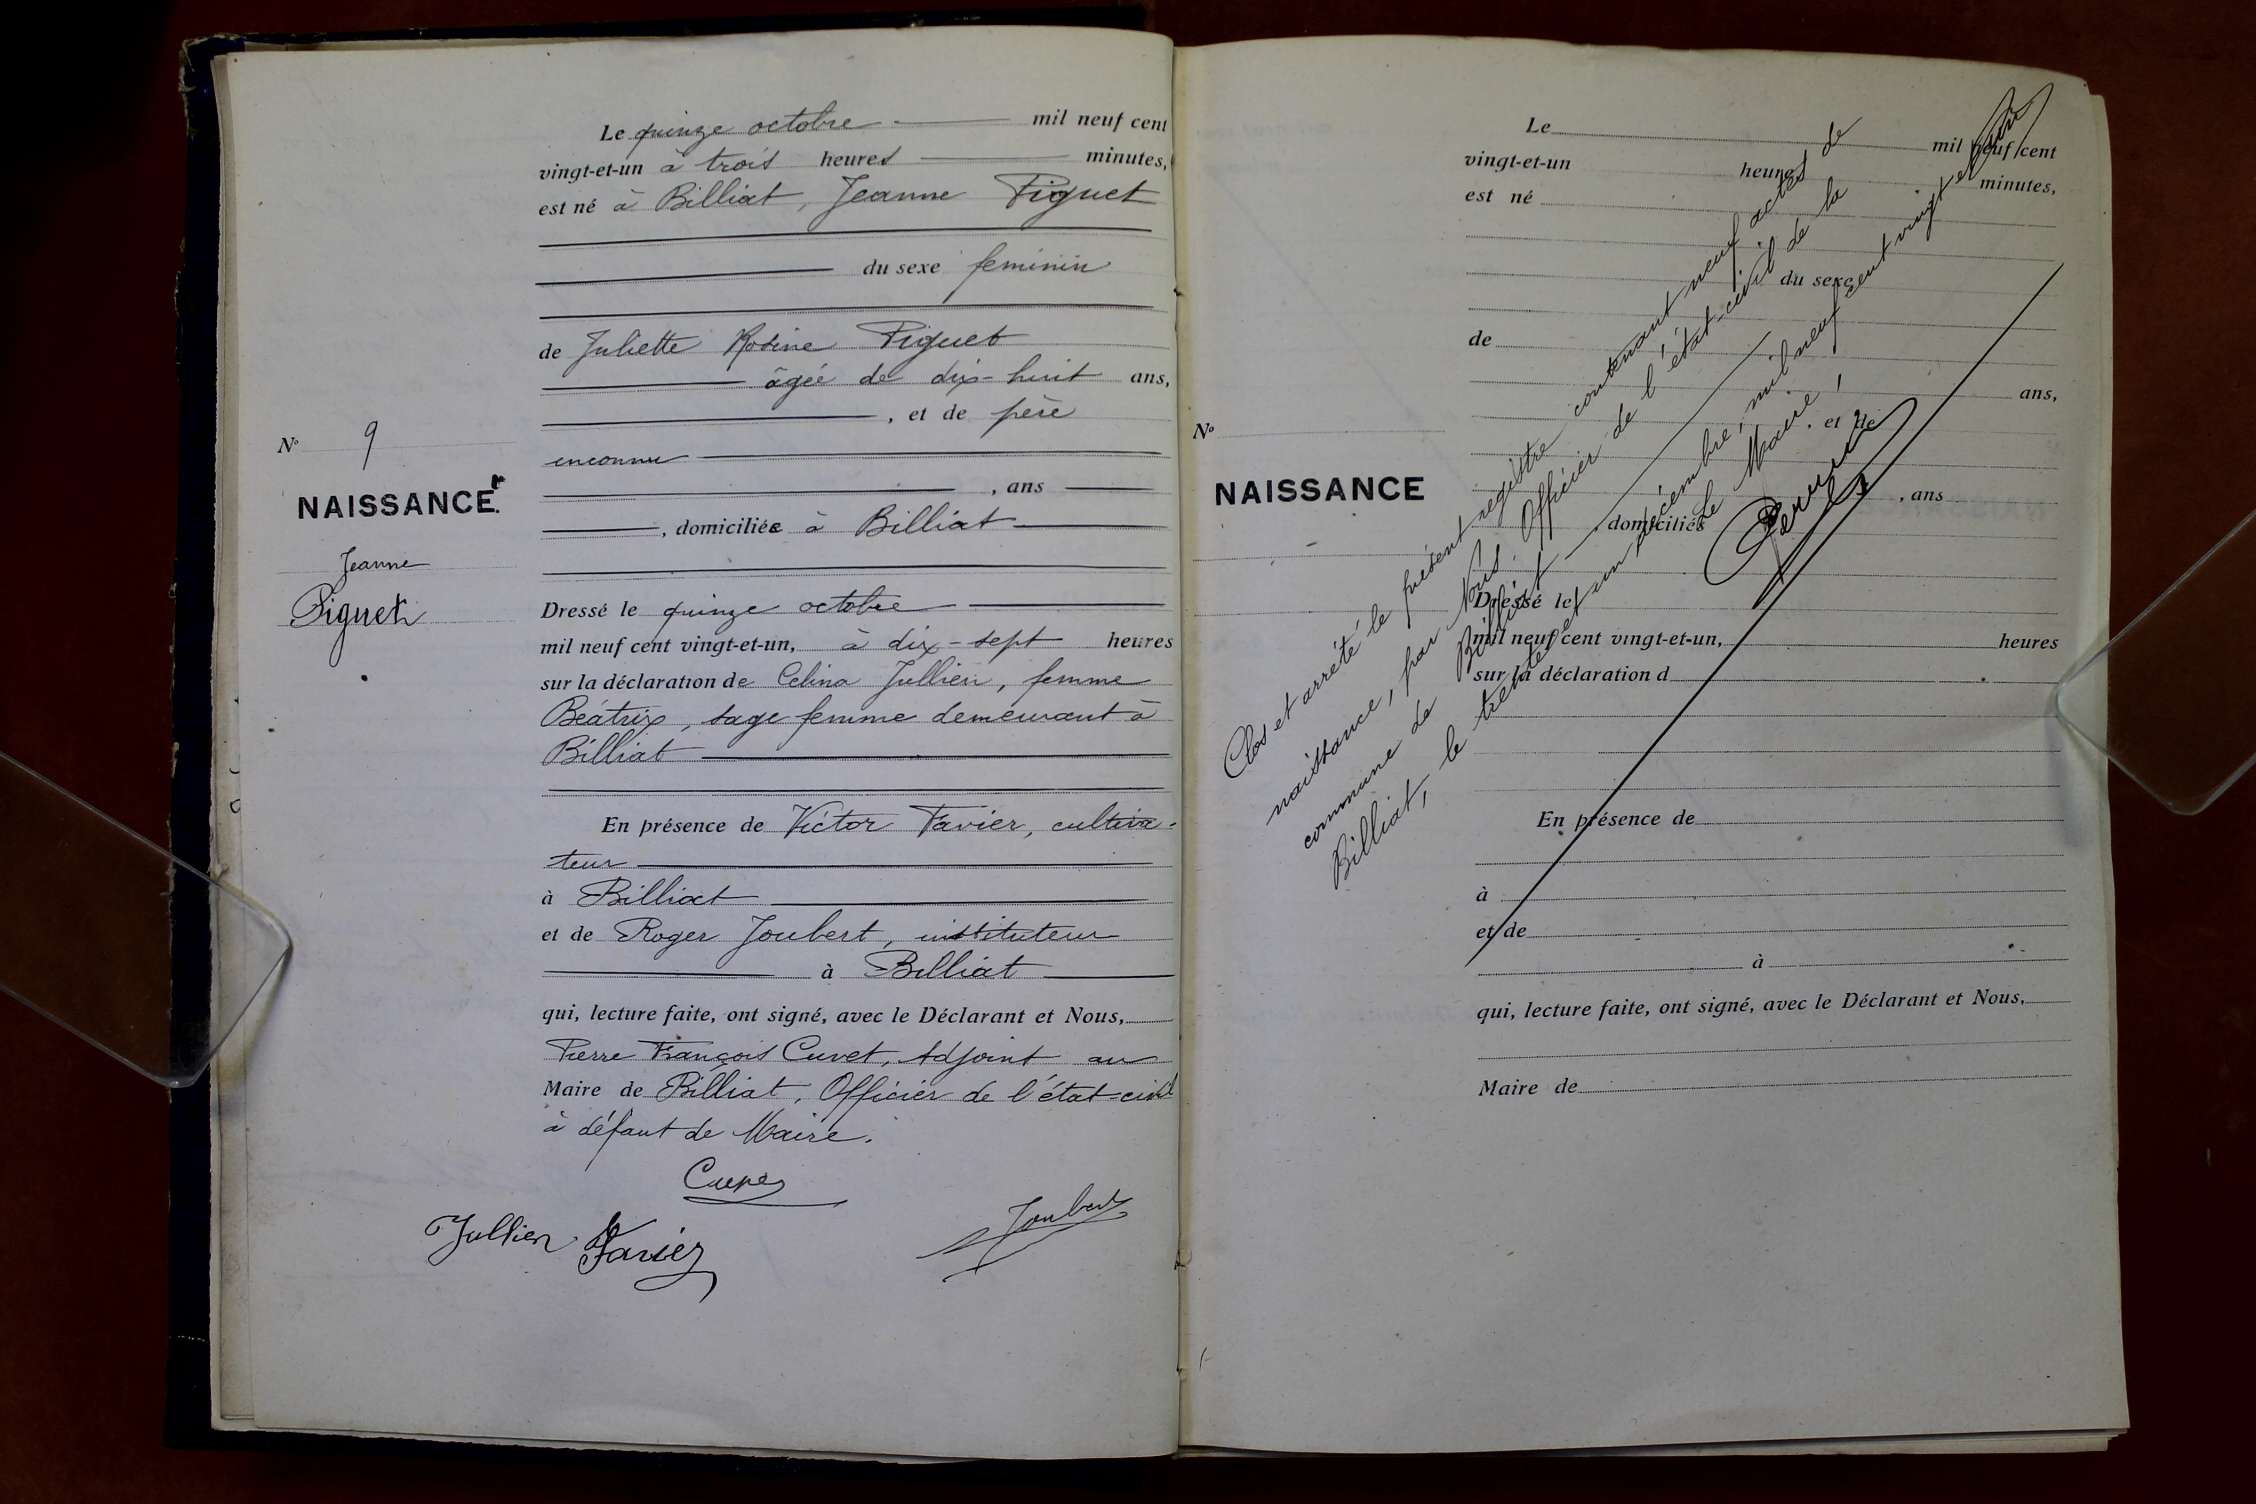 Le quinze octobre mil neuf cent
vingt-et-un à trois heures minutes,
est né à Billiat, Jeanne Piguet
du sexe feminin
de Juliette Rosine Piguet
âgée de dix-huit ans,
, et de père
inconnu
, ans
, domiciliée à Billiat
Dressé le quinze octobre
mil neuf cent vingt-et-un, à dix-sept heures
sur la déclaration de Celina Jullien, femme
Béatrix, sage femme demeurant à
Billiat
En présence de Victor Favier, cultiva-
teur
à Billiat
et de Roger Joubert, instituteur
à Billiat
qui, lecture faite, ont signé, avec le Déclarant et Nous,
Pierre François Cuvet, Adjoint au
Maire de Billiat, Officier de l'état-civil
à défaut de Maire.
Jullien Favier Joubert
N° 9
NAISSANCE
Jeanne
Piguet
Le mil neuf cent
vingt-et-un heures minutes,
est né
du sexe
de
ans,
, et de
, ans
, domiciliés
Dressé le
mil neuf cent vingt-et-un, heures
sur la déclaration d
En présence de
à
et de
à
qui, lecture faite, ont signé, avec le Déclarant et Nous,
Maire de
N°
NAISSANCE
Clos et arrêté le présent registre contenant neuf actes de
naissance, par Nous Officier de l'état-civil de la
commune de Billiat
Billiat, le trente et un décembre, mil neuf cent vingt et un
Le Maire,